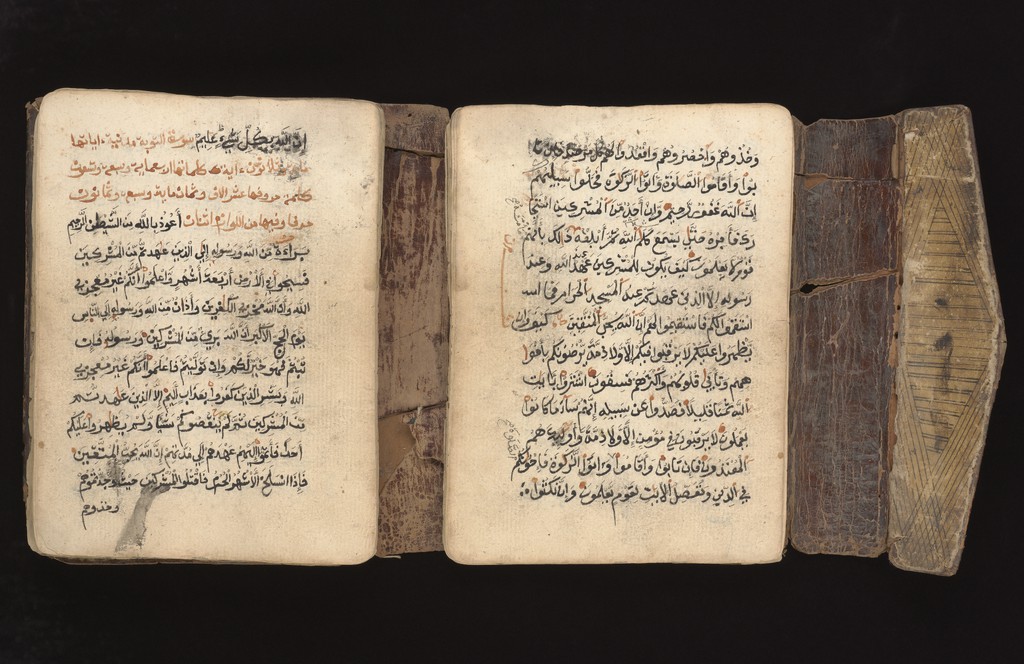 إن الله بكل شيء عليم سورة التوبة مدنية ءاياتها
ءاية كلماتها
كلمة حروفها عشر الاف وثمانماية وسبع وثمانون
حرفا وفيها من اللوازم اثنتان أعوذ بالله من الشيطن الرجيم
براءة من الله ورسوله إلى الذين عهدتم من المشركين
فسيحوا في الأرض أربعة أشهر واعلموا أنكم غير معجزي
الله وأن الله مخزي الكفرين وأذان من الله ورسوله إلى الناس
يوم الحج الأكبر أن الله بريء من المشركين ورسوله فإن
تبتم فهو خير لكم وإن توليتم فاعلموا أنكم غير معجزي
الله وبشر الذين كفروا بعذاب أليم إلا الذين عهدتم
من المشركين ثم لم ينقصوكم شيئا ولم يظهروا عليكم
أحدا فأتموا إليهم عهدهم إلى مدتهم إن الله يحب المتقين
فإذا انسلخ الأشهر الحرم فاقتلوا المشركين حيث وجدتموهم
وخذوهم
وخذوهم وأحصروهم واقعدوا لهم كل مرصد فإن تا
بوا وأقاموا الصلوة وءاتوا الزكوة فخلوا سبيلهم
إن الله غفور رحيم وإن أحد من المشركين استجا
رك فأجره حتى يسمع كلم الله ثم أبلغه ذالك بأنهم
قوم لا يعلمون كيف يكون للمشركين عهد الله وعند
رسوله إلا الذين عهدتم عند المسجد الحرام فما اسـ
استقموا لكم فاستقيموا لهم إن الله يحب المتقين كيف وإن
يظهروا عليكم لا يرقبوا فيكم إلا ولا ذمة يرضونكم بأفوا
ههم وتأبى قلوبهم وأكثرهم فسقون اشتروا بـايت
الله ثمنا قليلا فصدوا عن سبيله إنهم ساء ما كانوا
يعملون لا يرقبون في مؤمن إلا ولا ذمة وأوليك هم
المعتدون فإن تابوا وأقاموا وءاتوا الزكوة فإخونكم
في الدين ونفصل الأيت لقوم يعلمون وإن نكثوا
الصلوة